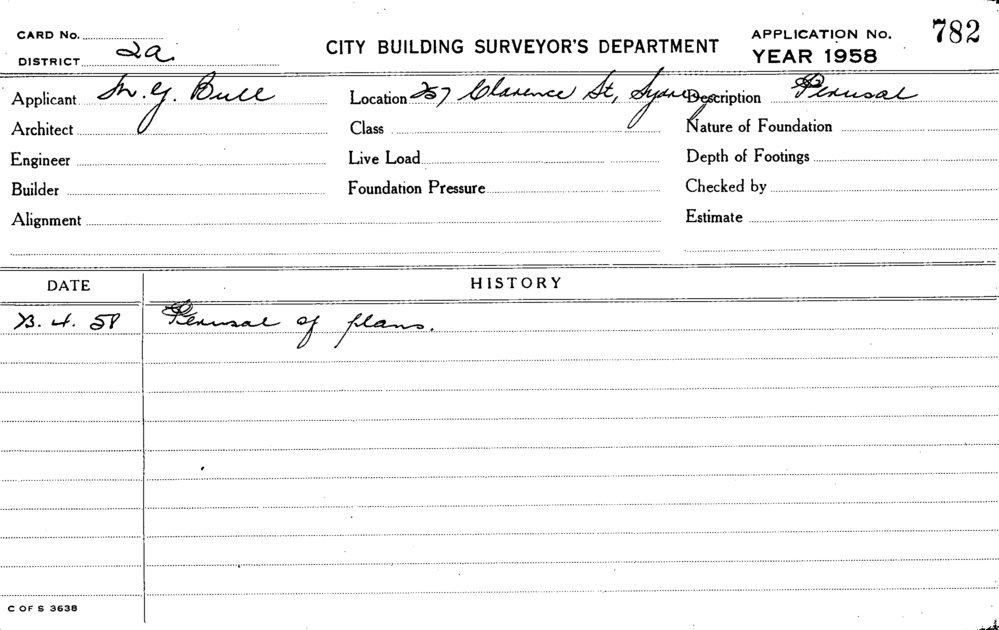 CARD No.
DISTRICT 2a
CITY BUILDING SURVEYOR'S DEPARTMENT
APPLICATION No. 782
YEAR 1958
Applicant M. G. Bull Location 257 Clarence St, Sydney Description Perusal
Architect Class Nature of Foundation
Engineer Live Load Depth of Footings
Builder Foundation Pressure Checked by
Alignment Estimate
DATE HISTORY
23. 4. 58 Perusal of plans.
C OF S 3638